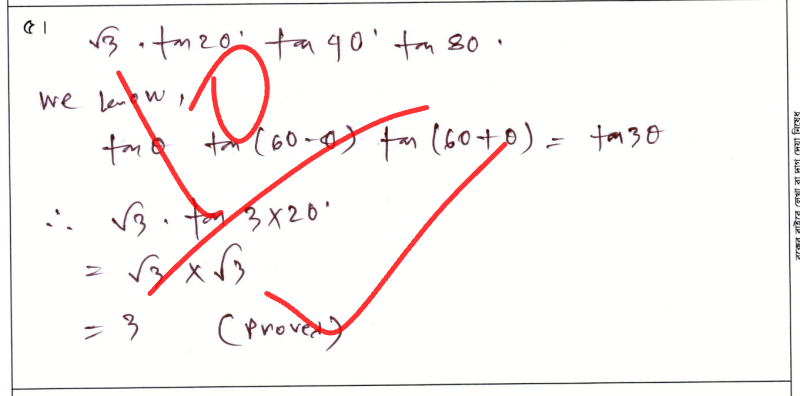 Q1
√3 . tan 20° tan 40° tan 80.
we know,
tan θ tan (60-θ) tan (60+θ) = tan 3θ
∴ √3 . tan 3×20°
= √3 × √3
= 3 (proved)
বক্সের বাইরে লেখা বা দাগ দেয়া নিষেধ